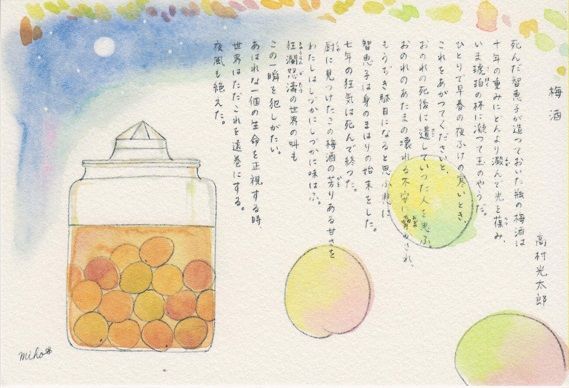 梅酒
高村光太郎
死んだ智恵子が造つておいた瓶の梅酒は
十年の重みにどんより澱んで光を葆み、
いま琥珀の杯に凝つて玉のやうだ。
ひとりで早春の夜ふけの寒いとき、
これをあがつてくださいと、
おのれの死後に遺していつた人を思ふ。
おのれのあたまの壊れる不安に脅かされ、
もうぢき駄目になると思ふ悲に
智恵子は身のまはりの始末をした。
七年の狂気は死んで終つた。
厨に見つけたこの梅酒の芳りある甘さを
わたしはしづかにしづかに味はふ。
狂瀾怒濤の世界の叫も
この一瞬を犯しがたい。
あはれな一個の生命を正視する時
世界はただこれを遠巻にする。
夜風も絶えた。
miho